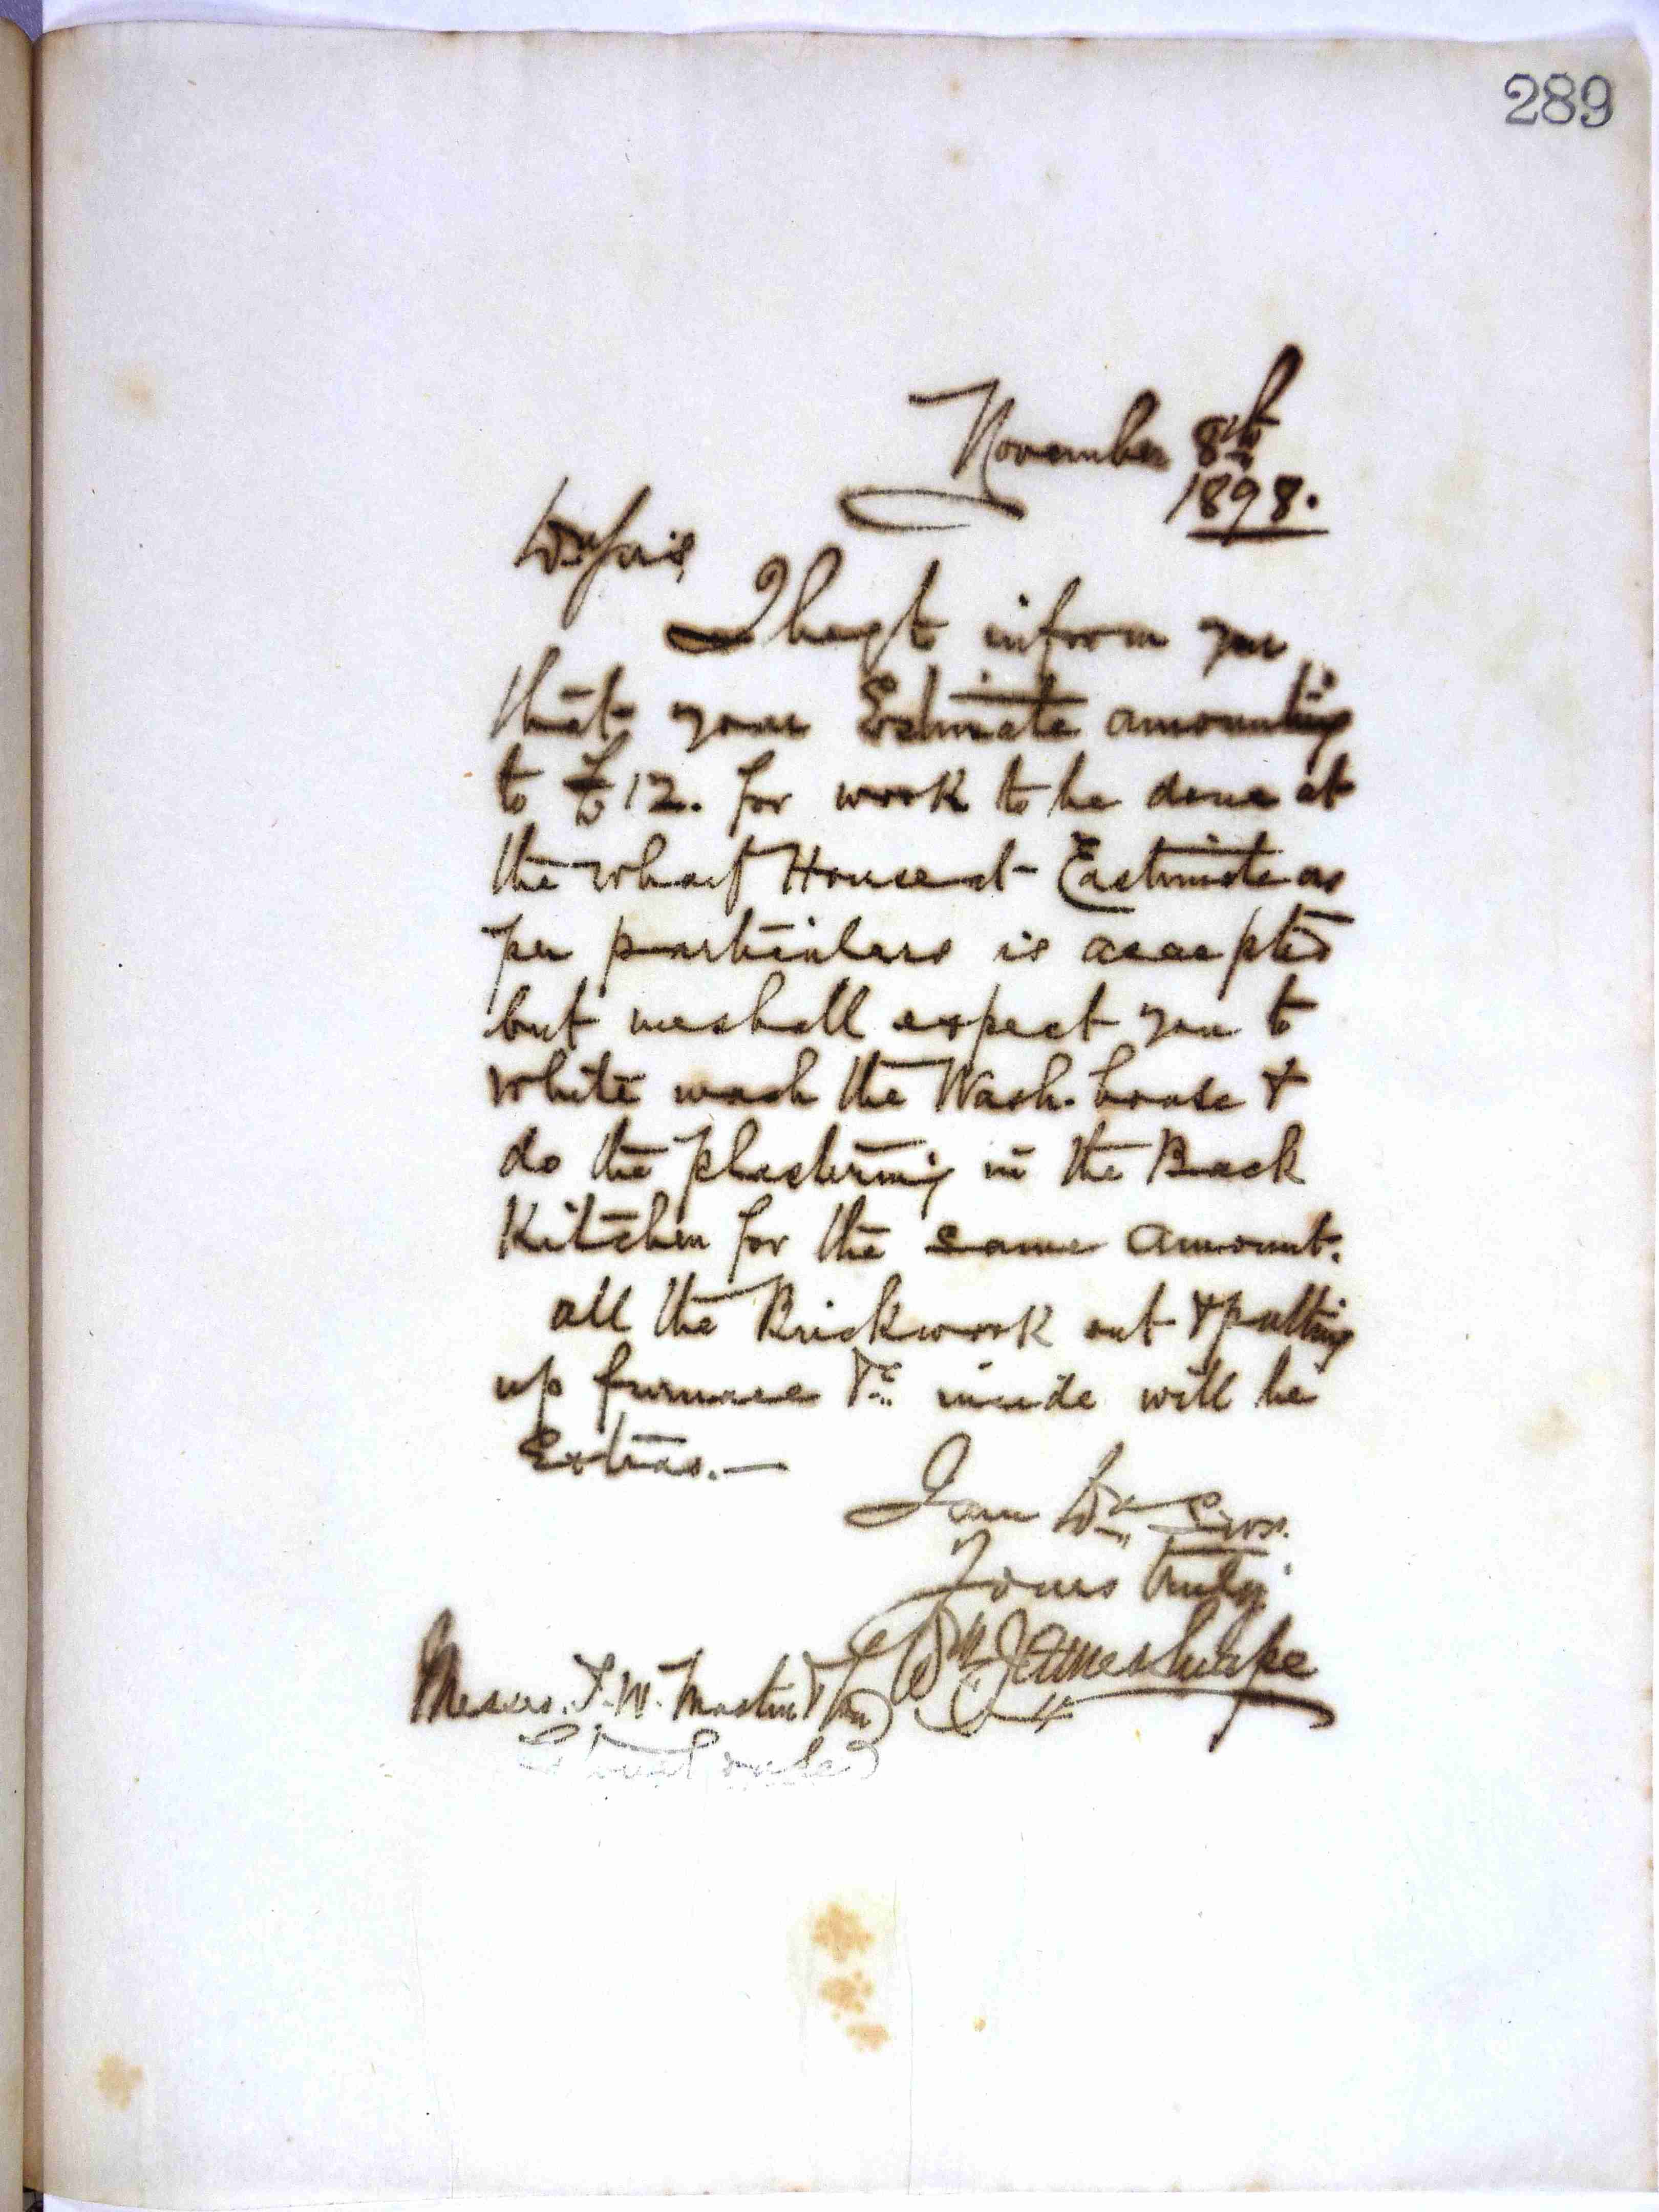 289
November 8th
1898.
Dr Sirs,
I beg to inform you
that your Estimate amounting
to £12. for work to be done at
the Wharf House at Eastmute as
per particulars is accepted
but we shall expect you to
white wash the Wash-house &
do the plastering in the Back
Kitchen for the same amount.
all the Brickwork out & putting
up furnace &c inside will be
Extras.—
I am Dr Sirs.
Yours truly
Wm Jameshurpe
Messrs. T. W. Martin & Son
Stonehouse